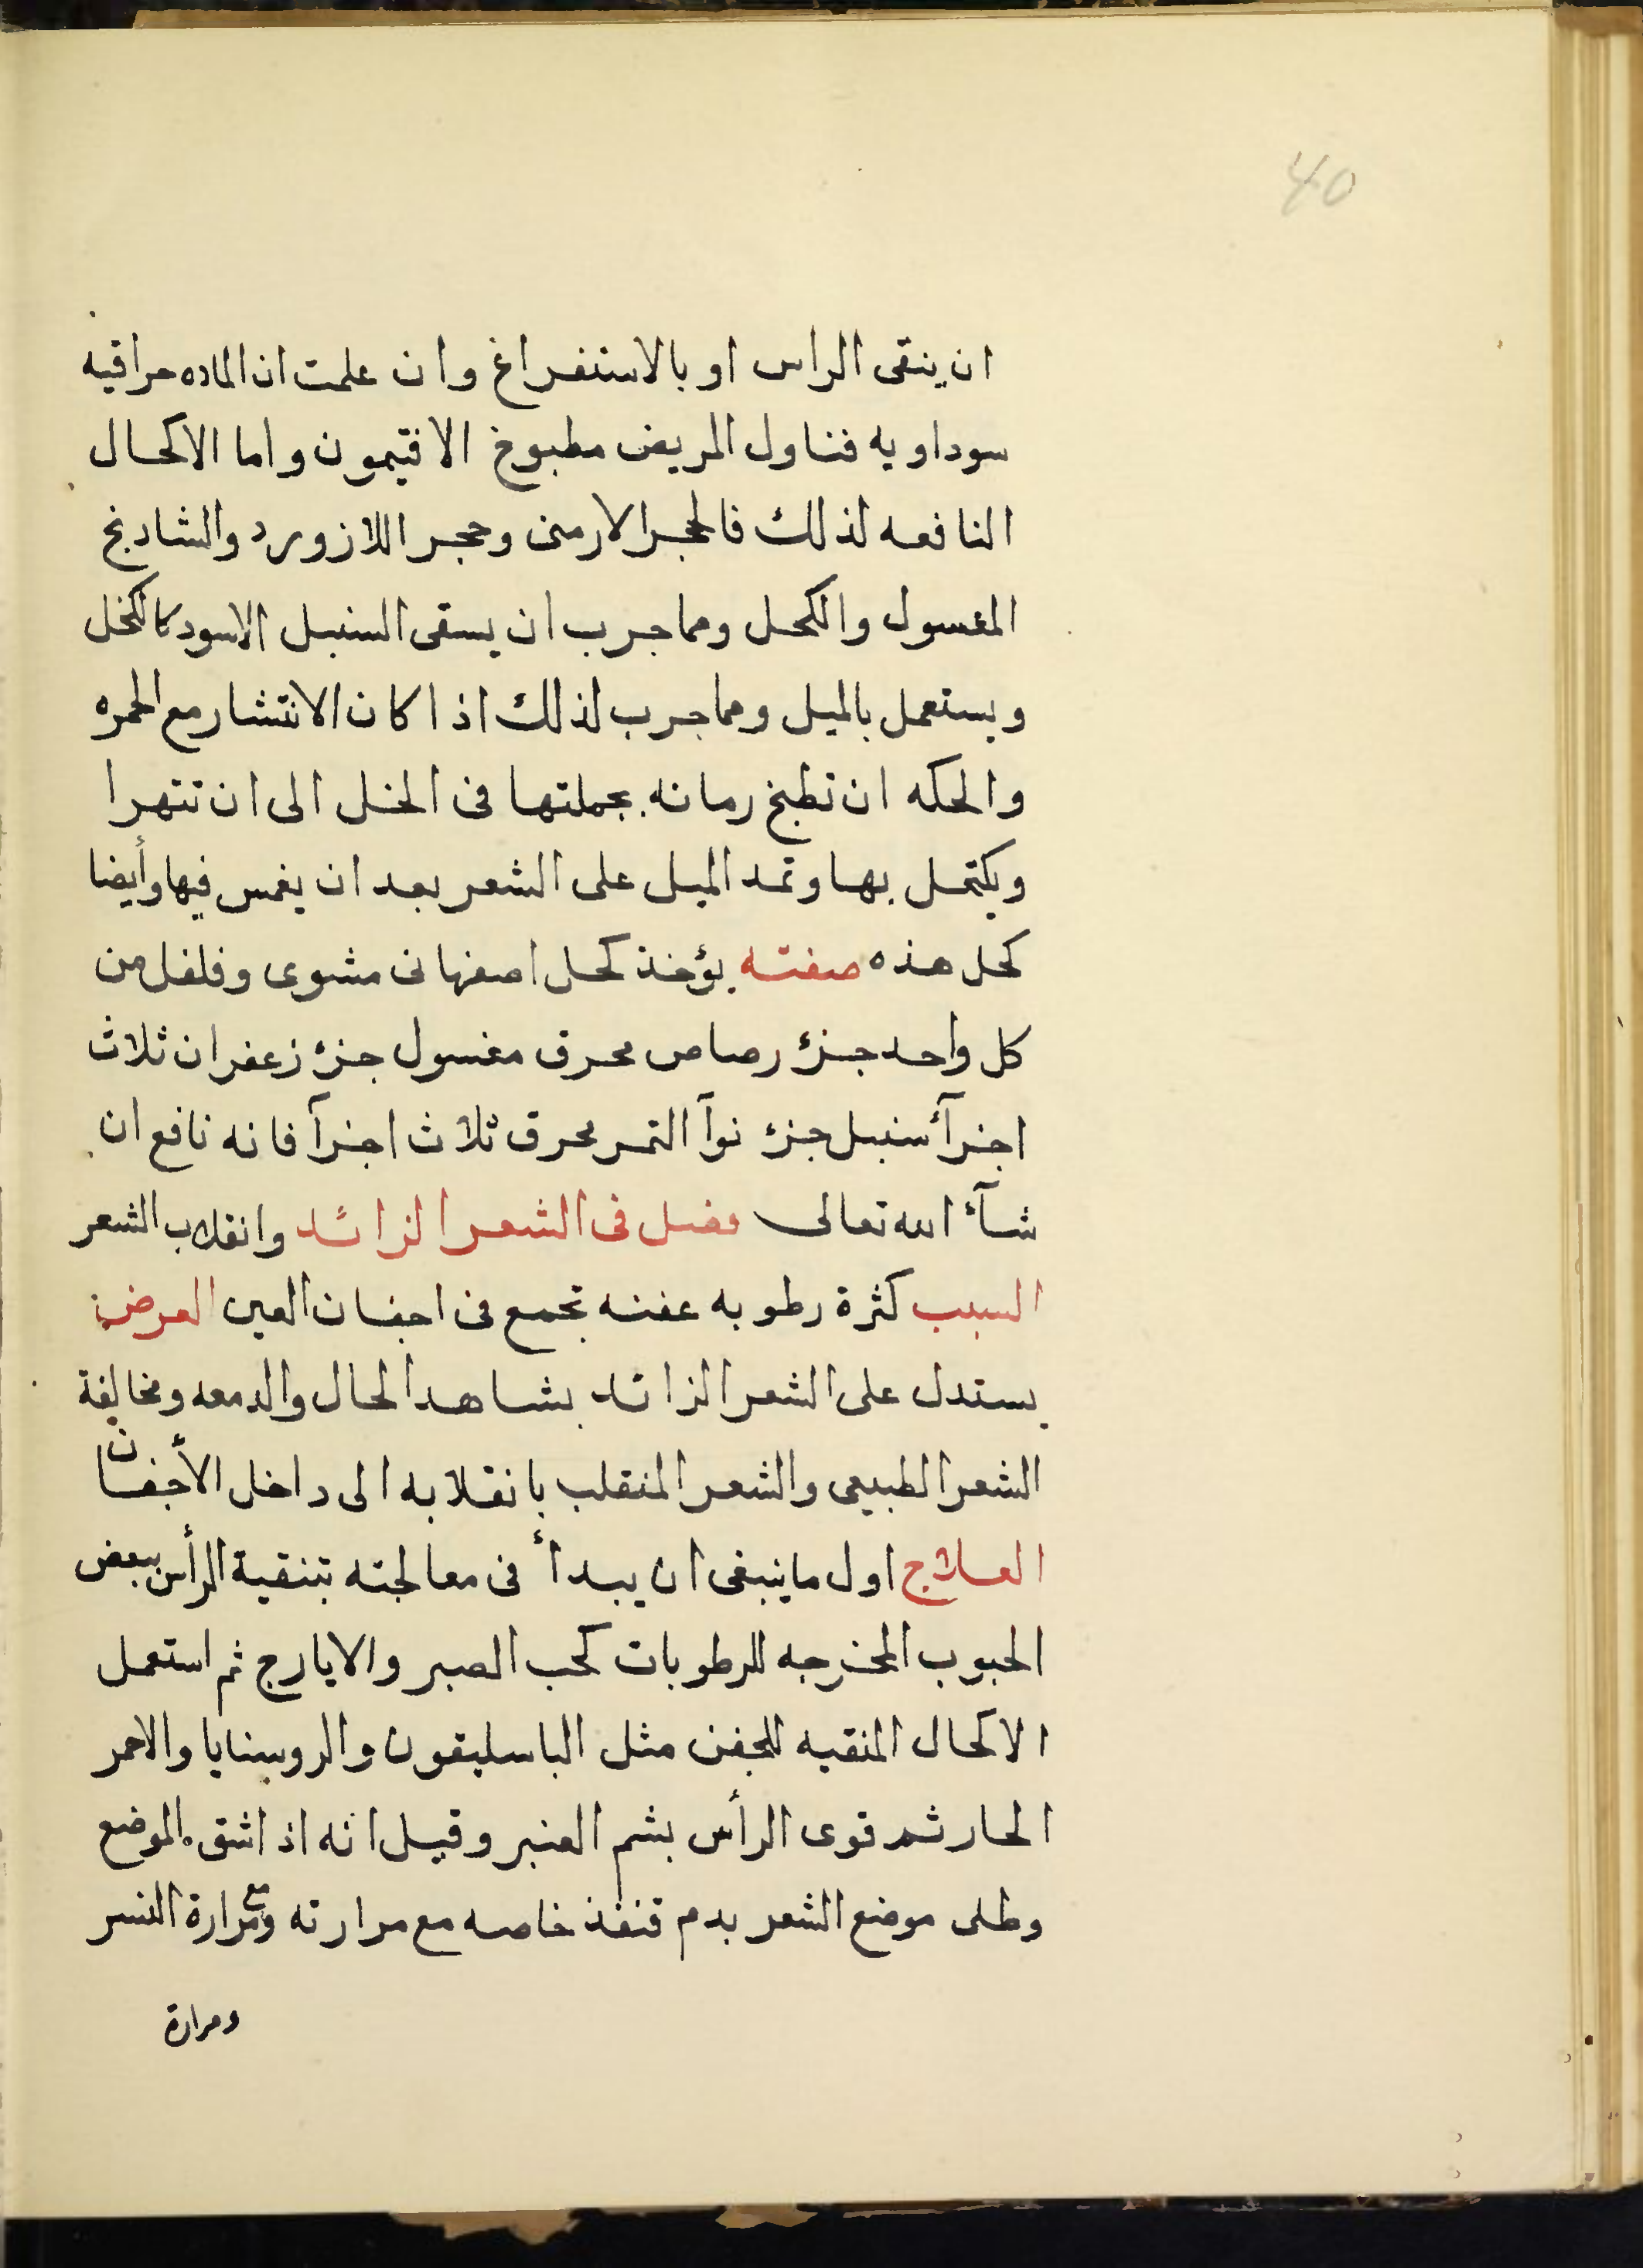 40
ان ينقى الراس او بالاستفراغ وان علمت ان الماده حراقيه
سوداويه فناول المريض مطبوخ الافتيمون واما الاكحال
النافعه لذلك فالحجر الارمنى وحجر اللازورد والشادنج
المغسول والكحل ومما جرب ان يسقى السنبل الاسود كالكحل
ويستعمل بالميل ومما جرب لذلك اذا كان الانتشار مع الحمره
والحكه ان تطبخ رمانه بجملتها فى الخل الى ان تتهرا
ويكتحل بها وتمد الميل على الشعر بعد ان يغمس فيها وأيضا
كحل هذه صفته يؤخذ كحل اصفهانى مشوى وفلفل من
كل واحد جزء رصاص محرق مغسول جزء زعفران ثلاث
اجزآء سنبل جزء نوآ التمر محرق ثلاث اجزآ فانه نافع ان
شآء الله تعالى فصل فى الشعر الزائد وانقلاب الشعر
السبب كثرة رطوبه عفنه تجمع فى اجفان العين العرض
يستدل على الشعر الزائد بشاهد الحال والدمعه ومخالفة
الشعر الطبيعى والشعر المنقلب بانقلابه الى داخل الأجفان
العلاج اول ما ينبغى ان يبدأ فى معالجته بتنقية الرأس ببعض
الحبوب المخرجه للرطوبات كحب الصبر والايارج ثم استعمل
الاكحال المنقيه للجفن مثل الباسليقون والروسنايا والاحمر
الحار ثم قوى الرأس بشم العنبر وقيل انه اذا شق الموضع
وطلى موضع الشعر بدم قنفذ خاصه مع مرارته ومع مرارة النسر
ومرارة